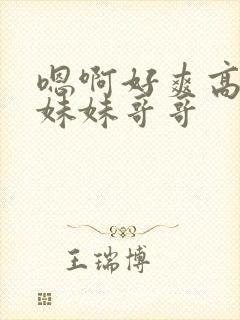 嗯啊好爽高
妹妹哥哥
王瑞博